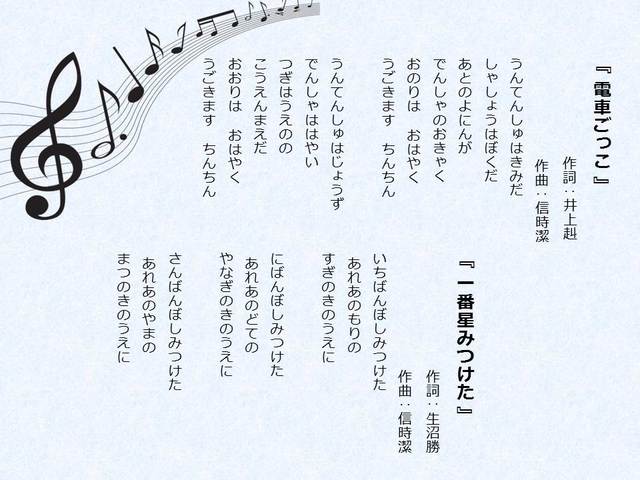 『電車ごっこ』
作詞：井上赳
作曲：信時潔
うんてんしゅはきみだ
しゃしょうはぼくだ
あとのよにんが
でんしゃのおきゃく
おのりは　おはやく
うごきます　ちんちん
うんてんしゅはじょうず
でんしゃははやい
つぎはうえのの
こうえんまえだ
おおりは　おはやく
うごきます　ちんちん
『一番星みつけた』
作詞：生沼勝
作曲：信時潔
いちばんぼしみつけた
あれあのもりの
すぎのきのうえに
にばんぼしみつけた
あれあのどての
やなぎのきのうえに
さんばんぼしみつけた
あれあのやまの
まつのきのうえに